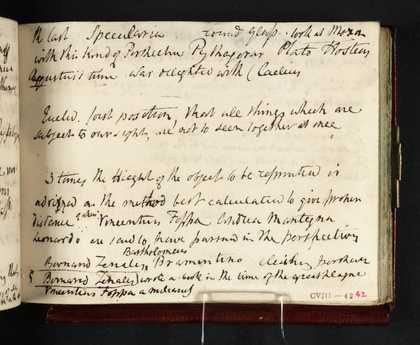 the last Specularia round Glass. look at
with this kind of Pythagoras Plato
Augustus's time was delighted with Caelius
Euclid. first position, that all things which are
subject to our sight, are not to seen together at once
3 times the Height of the object to be represented is
advised as the method best calculated to give proper
distance Vincentius Foppa Andrea Mantegna
Leonardo are said to have pursued in the perspective
Bartholomeus
Bernard Zenale, Bramantino
& Bernard Zenale, wrote a book in the time of the great plague
Vincentius Foppa a milanese
CVIII - 42 42